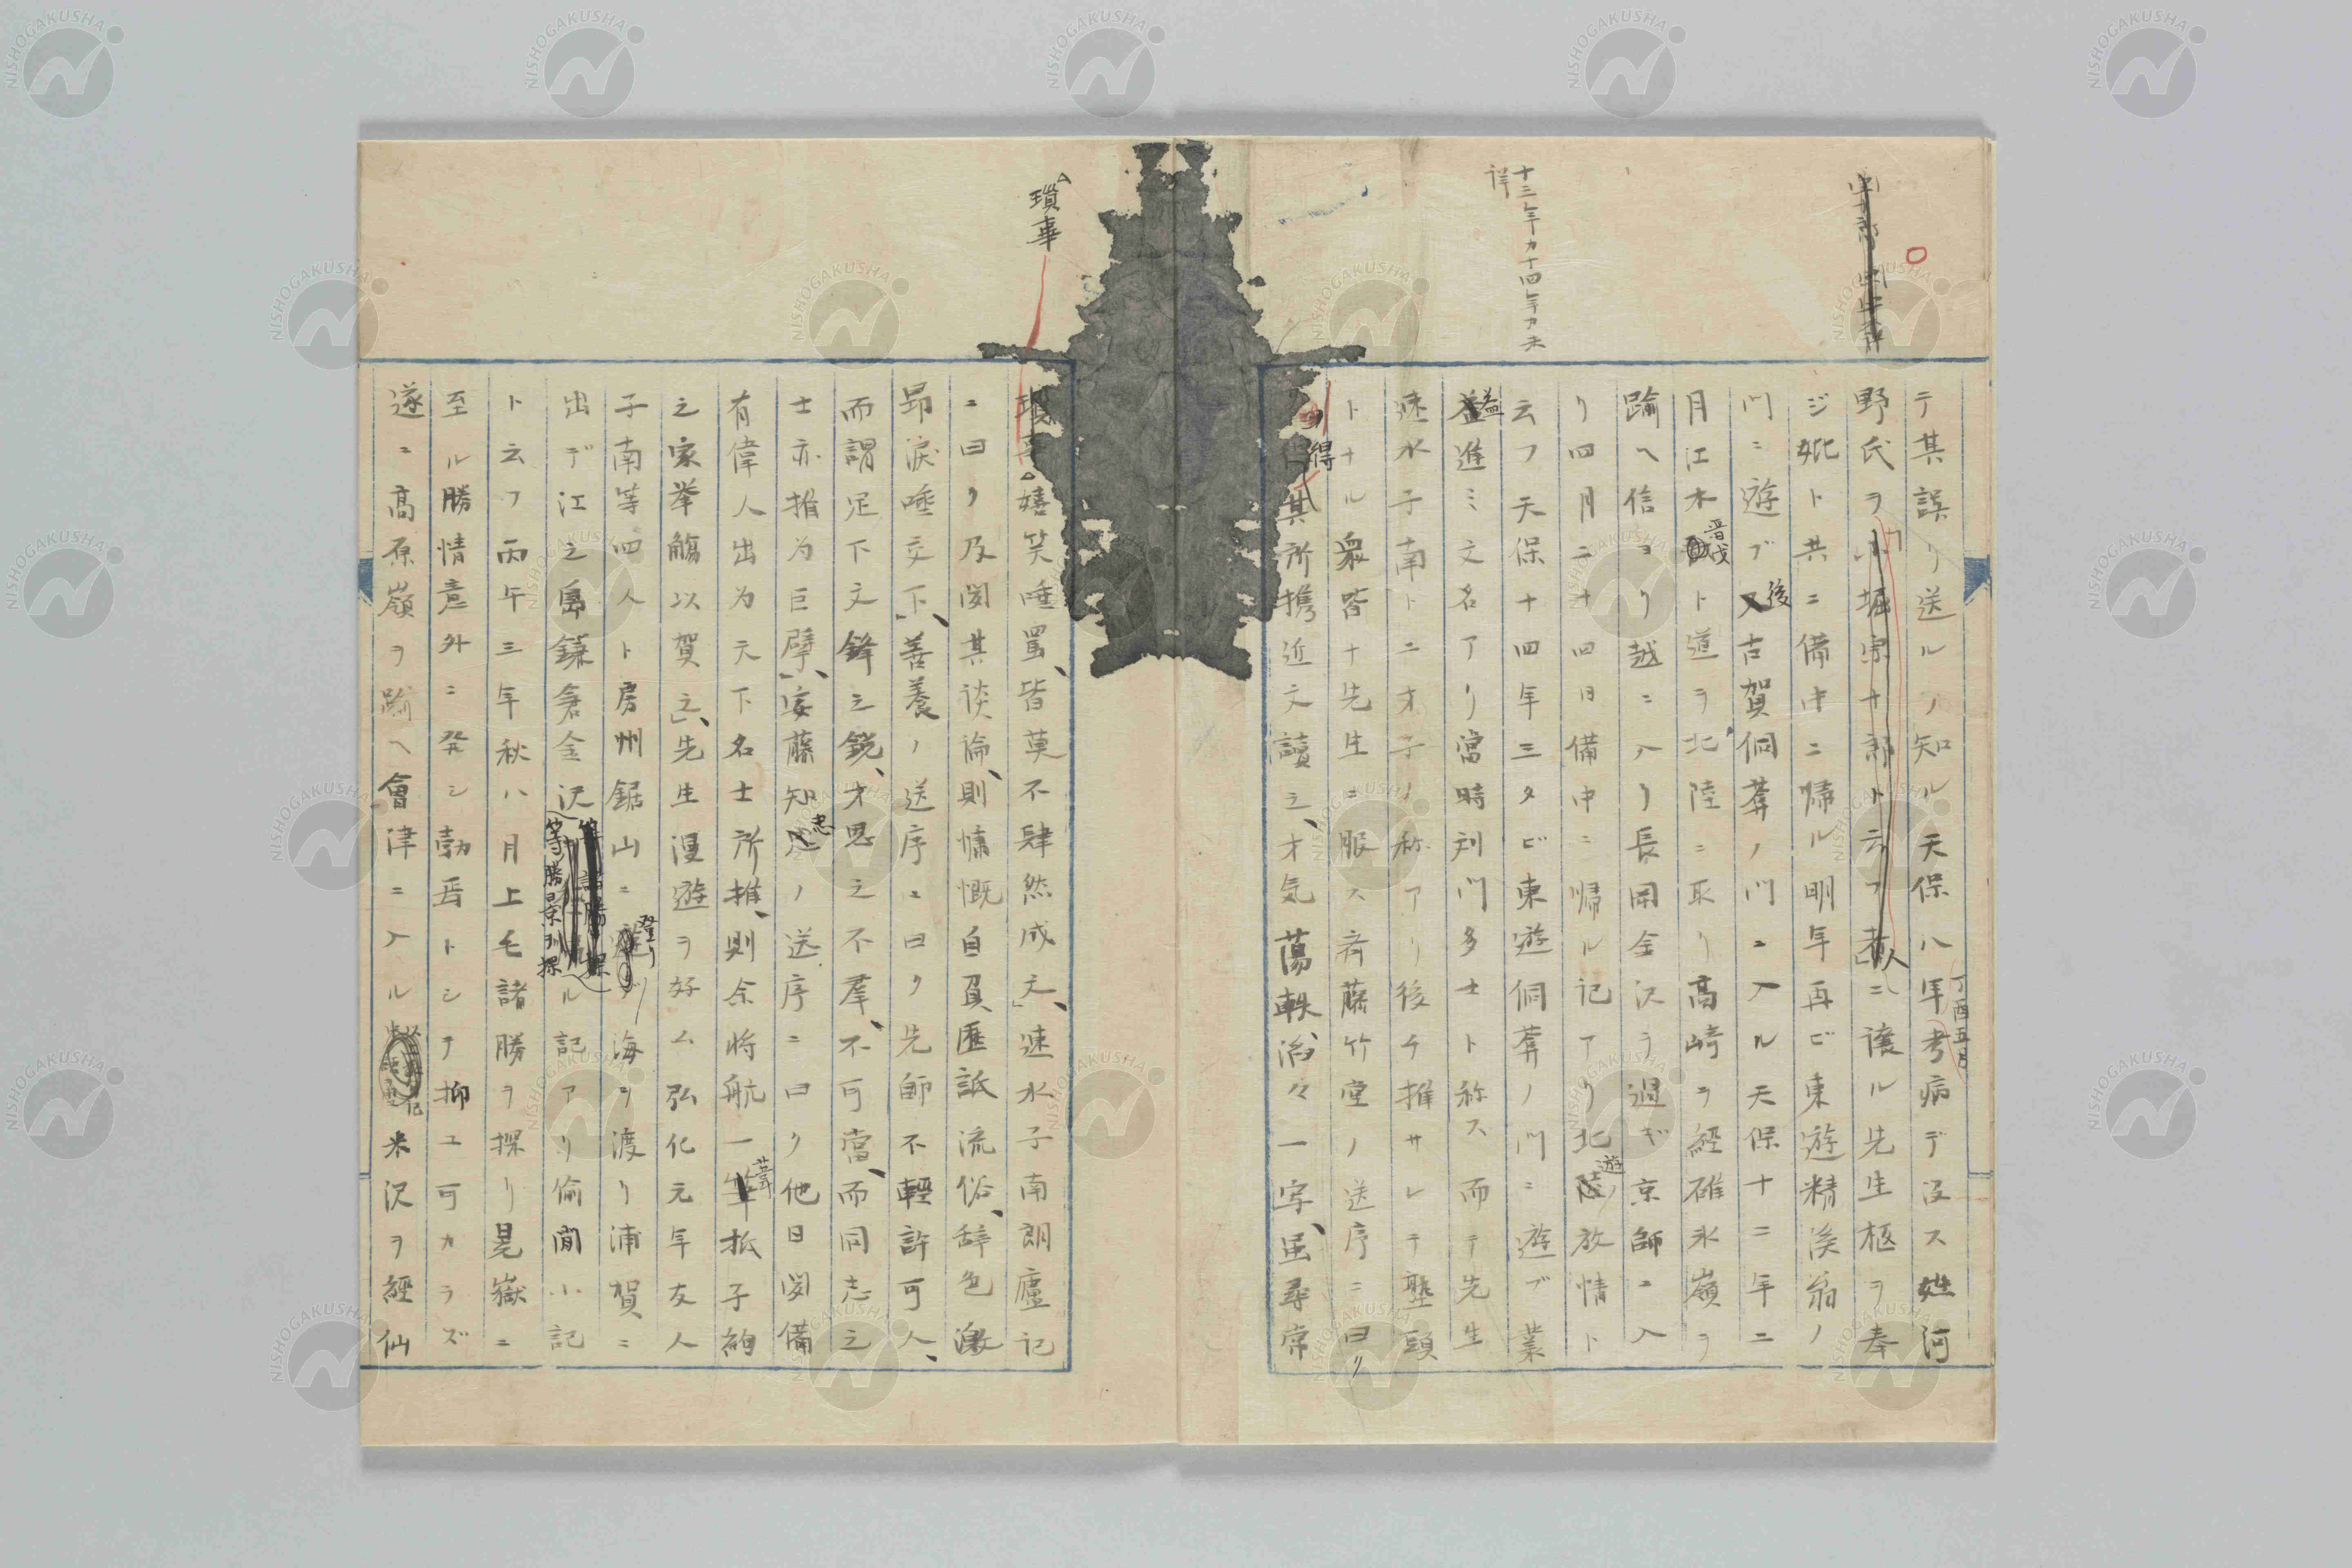 テ其誤リ送ルヲ知ル天保八年考病デ没ス姓河
丁酉五月
野氏ヲ小堀宗十郎ト云フ者人ニ譲ル先生柩ヲ奉
ジ妣ト共ニ備中ニ帰ル明年再ビ東遊精渓翁ノ
門ニ遊ブ又後古賀侗葊ノ門ニ入ル天保十二年二
月江木晋戈ト道ヲ北陸ニ取リ高崎ヲ経碓氷嶺ヲ
踰ヘ信ヨリ越ニ入リ長岡金沢ヲ過ギ京師ニ入
リ四月二十四日備中ニ帰ル記アリ北遊放情ト
云フ天保十四年三タビ東遊侗葊ノ門ニ遊ブ業
十三年カ十四年カ未
詳
益進ミ文名アリ當時列門多士ト称ス而テ先生
速水子南トニ才子ノ称アリ後チ推サレテ塾頭
トナル衆皆十先生ニ服ス斉藤竹堂ノ送序ニ曰ク
得其所携近文讀之、才気蕩軼、滔々一寫、虽尋常
瑣事
瑣事嬉笑唾罵、皆莫不肆然成文」、速水子南朗廬記
ニ曰ク及関其談論、則慷慨自負匯詆流俗、辞色激
昂涙唾交下」、善養ノ送序ニ曰ク先師不輕許可人、
而謂足下文鋒之鋭、才思之不羣、不可當、而同志之
士亦推为巨擘」、安藤知忠ノ送序ニ曰ク他日関備
有偉人出为天下名士所推、則余将航一葦抵子絢
之家挙觴以賀之」、先生漫遊ヲ好ム弘化元年友人
子南等四人ト房州鋸山ニ登リ海ヲ渡リ浦賀ニ
出デ江之島鎌倉金沢等勝景ヲ探ル記アリ偷閒小記
ト云フ丙午三年秋八月上毛諸勝ヲ探リ晃嶽ニ
至ル勝情意外ニ発シ勃焉トシテ抑ユ可カラズ
遂ニ高原嶺ヲ踰ヘ會津ニ入ル米沢ヲ經仙